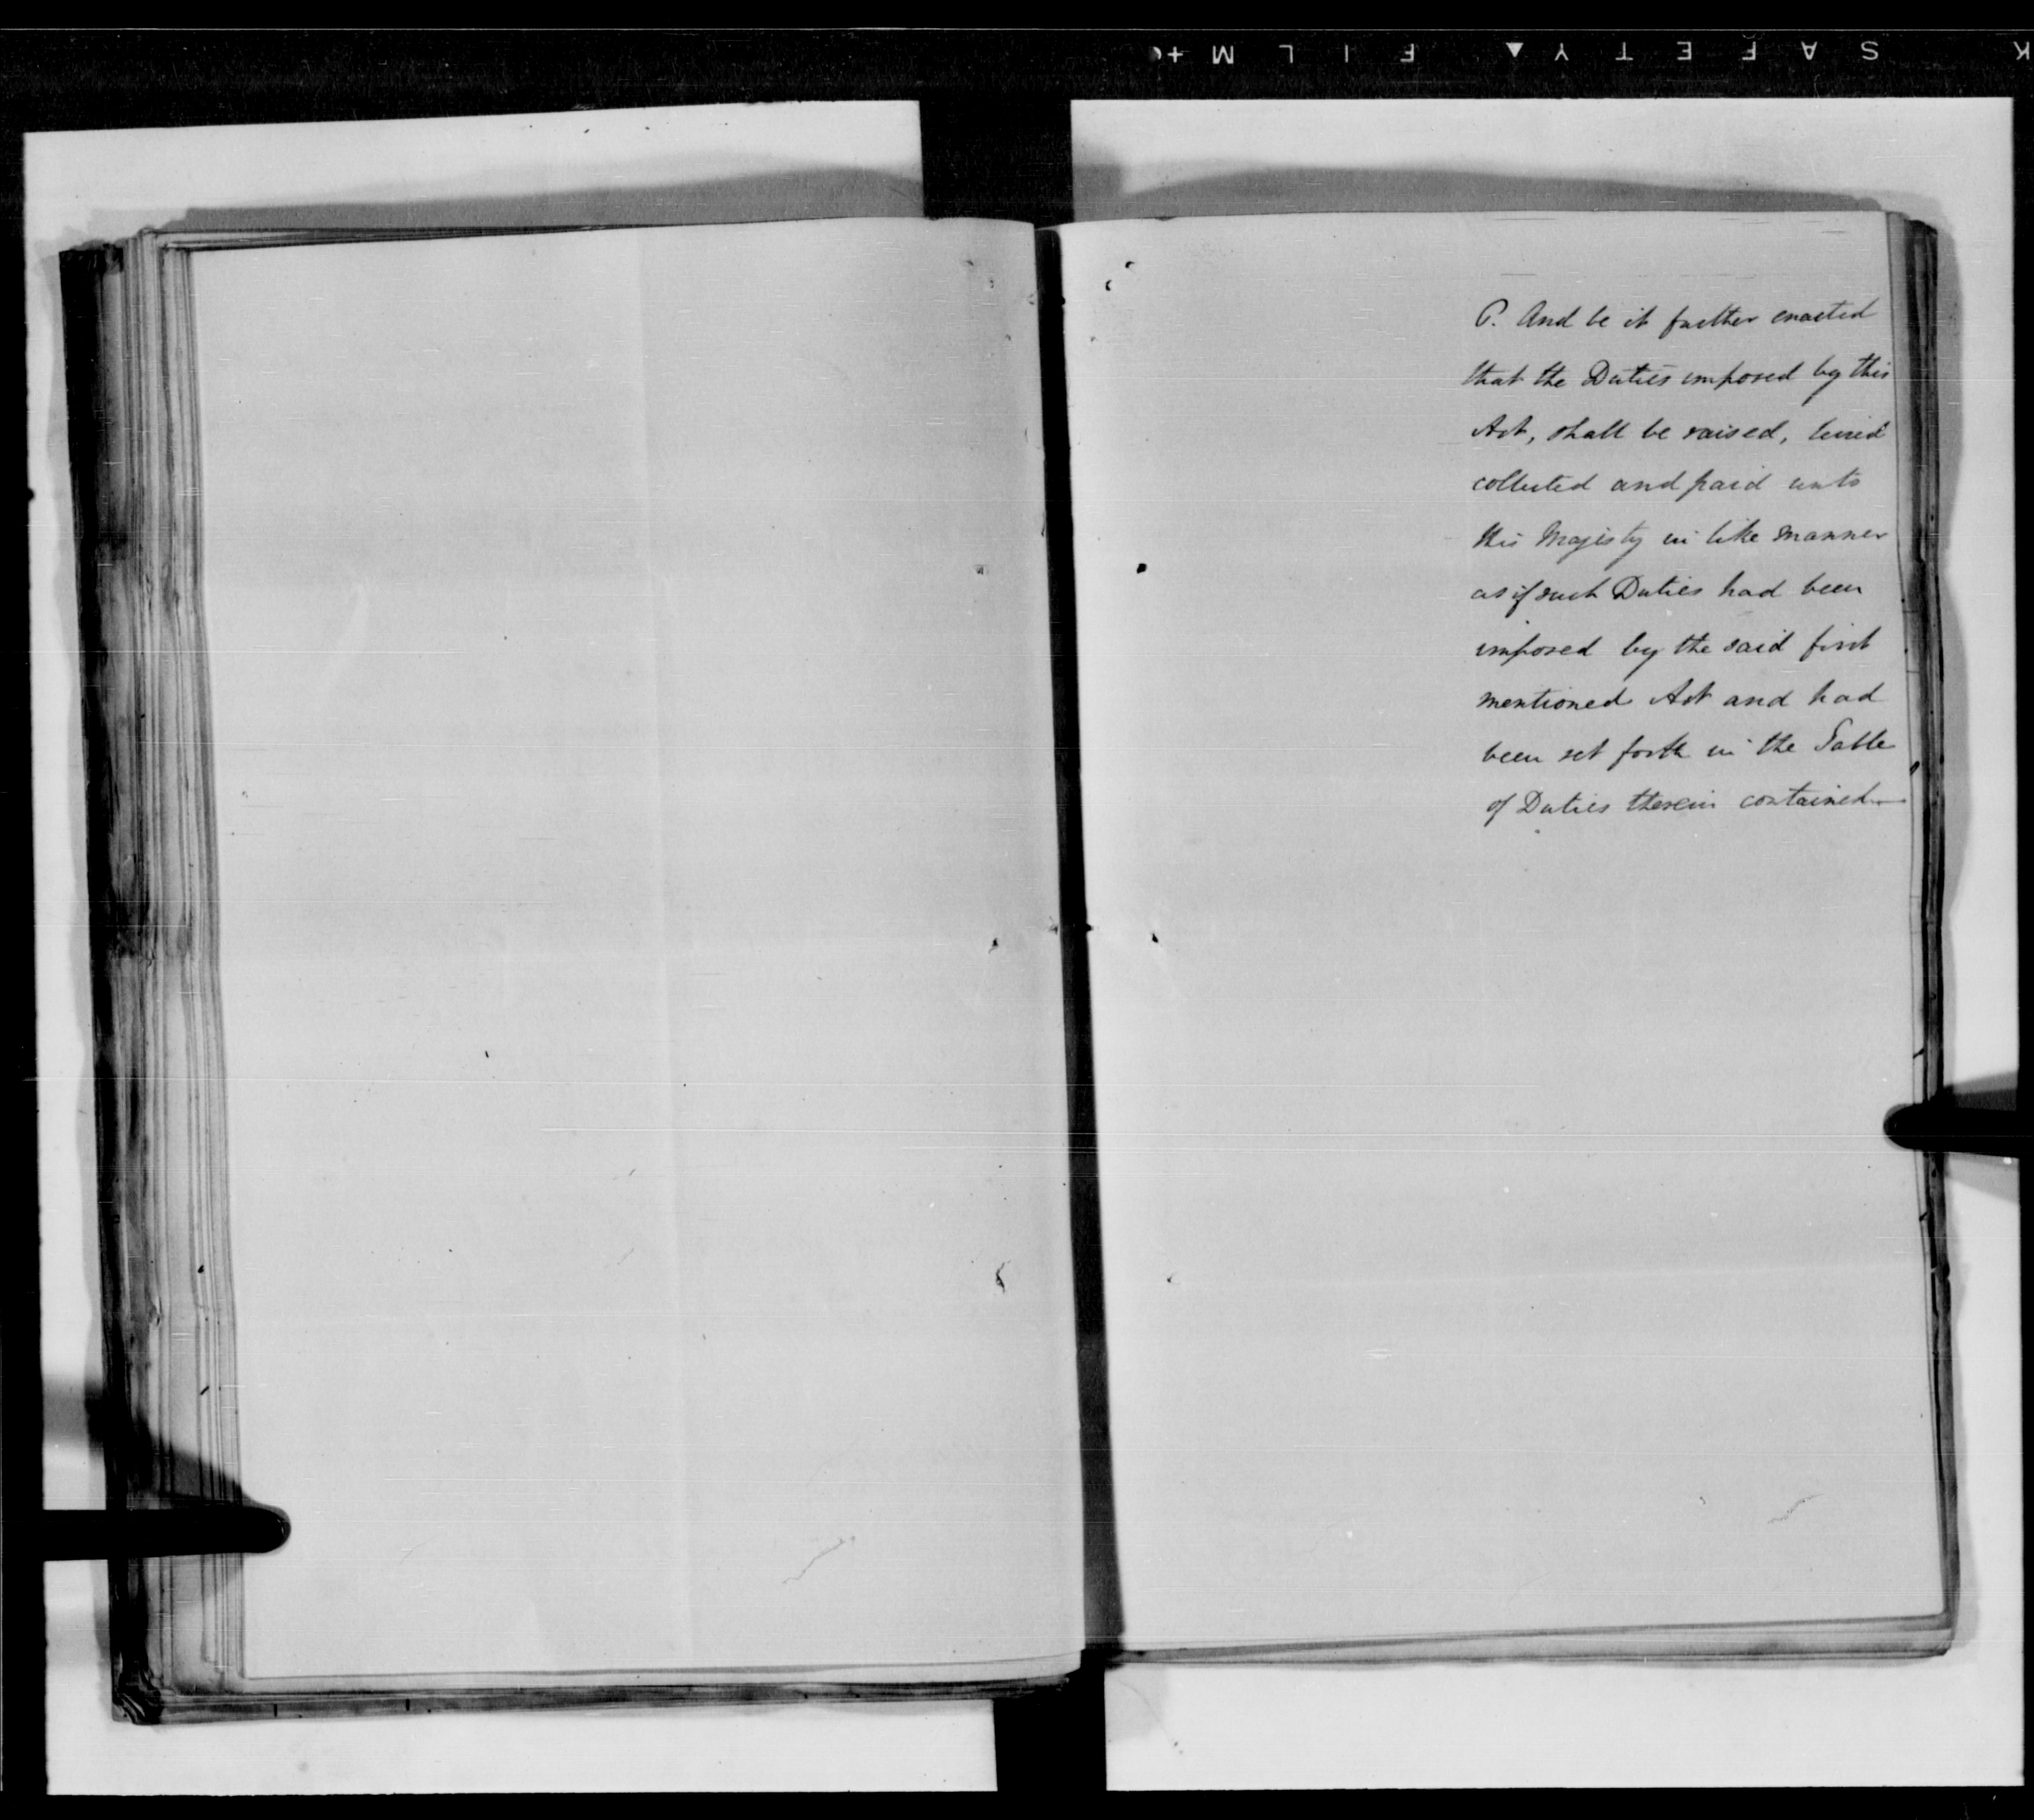 K SAFETY▲ FILM+
P. And be it further enacted
that the Duties imposed by this
Act, shall be raised, levied
collected and paid unto
His Majesty in like manner
as if such Duties had been
imposed by the said first
mentioned Act and had
been set forth in the Table
of Duties therein contained